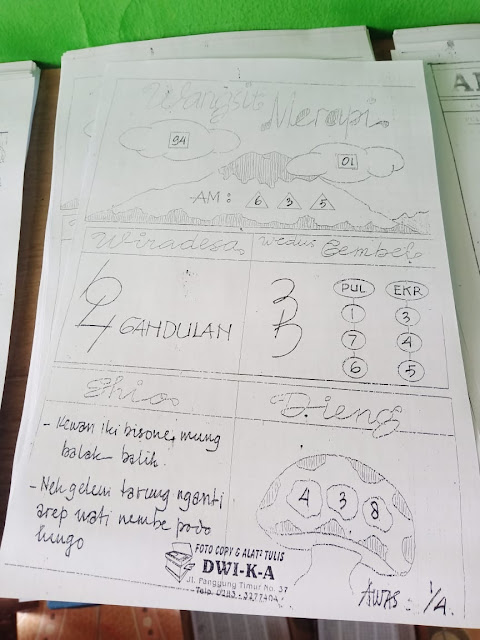 Wangsit
Merapi
94
01
AM : 6 3 5
Wiradesa
Wedus Gembel
6
4 GANDULAN
3
5
PUL EKR
1 3
7 4
6 5
Ghios
Dieng
- Kewan iki bisone mung
balak balik
- Nek gelem tarung nganti
arep mati nembe podo
lungo
4 3 8
FOTO COPY & ALAT² TULIS
DWI-K-A
Jl. Panggung Timur No. 37
AWAS : 1/4.
A